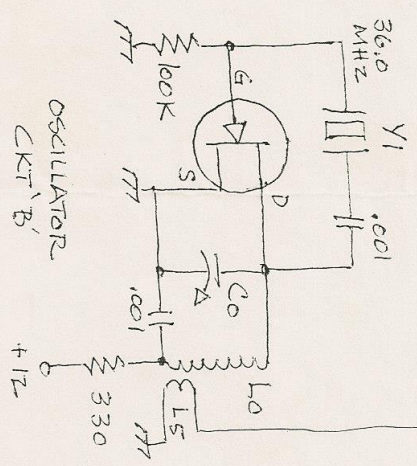 36.0
MHZ
Y1
.001
100K
G
S
D
C0
.001
L0
L5
330
+12
OSCILLATOR
CKT 'B'